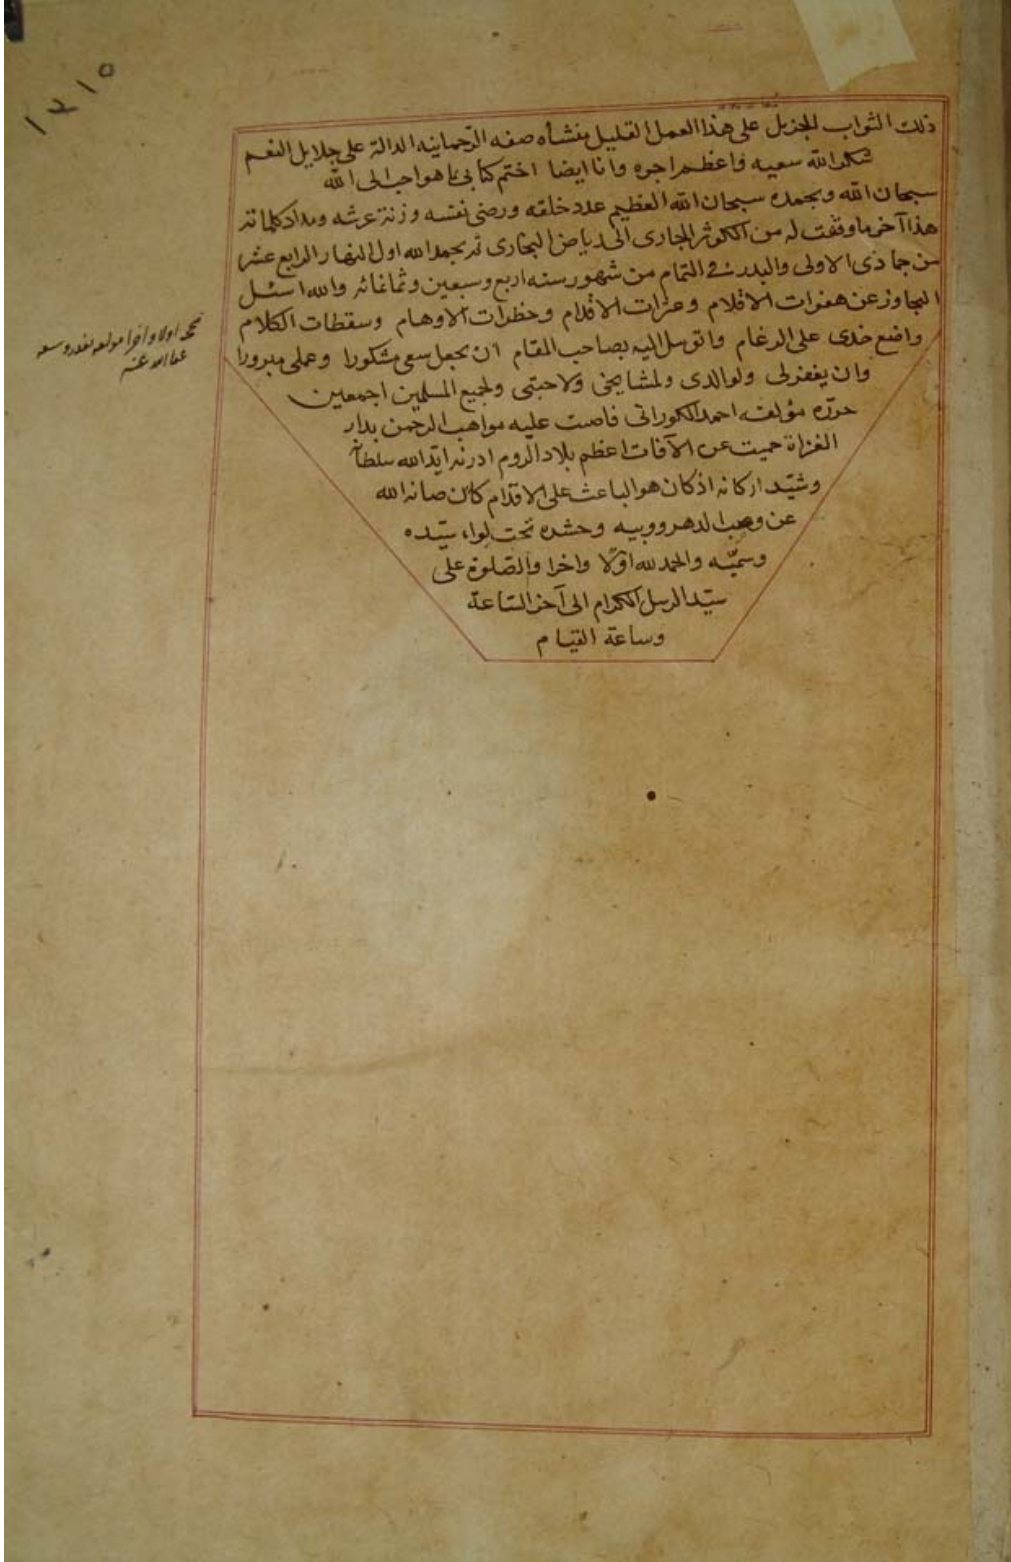 ١٢١٥
ذلك الثواب الجزيل على هذا العمل القليل منشأه صفه الرحمانيه الدالة على جلايل النعم
شكر الله سعيه واعظم اجره وانا ايضا اختم كتابى بما هو احب الى الله
سبحان الله وبحمده سبحان الله العظيم عدد خلقه ورضى نفسه وزنة عرشه ومداد كلماته
هذا آخر ما وفقت له من الكوثر الجارى الى رياض البخارى تم بحمد الله اول النهار الرابع عشر
من جماذى الاولى والبدر فى التمام من شهور سنه اربع وسبعين وثمانمائه والله اسئل
التجاوز عن هفوات الاقلام وعثرات الاقدام وخطرات الاوهام وسقطات الكلام
واضع خدى على الرغام واتوسل اليه بصاحب المقام ان يجعل سعى مشكورا وعملى مبرورا
وان يغفر لى ولوالدى ولمشايخى ولاحبتى ولجميع المسلمين اجمعين
حرّره مؤلفه احمد الكورانى فاضت عليه مواهب الرحمن بدار
الغزاة حميت عن الآفات اعظم بلاد الروم ادرنه ايّد الله سلطانه
وشيّد اركانه اذ كان هو الباعث على الاقدام كائن صانه الله
عن الدهر وريبه وحشره تحت لواء سيّده
وسميّه والحمد لله اوّلا واخرا والصلوة على
سيّد الرسل الكرام الى آخر الساعة
وساعة القيام
اولا واخرا
عفا الله عنه